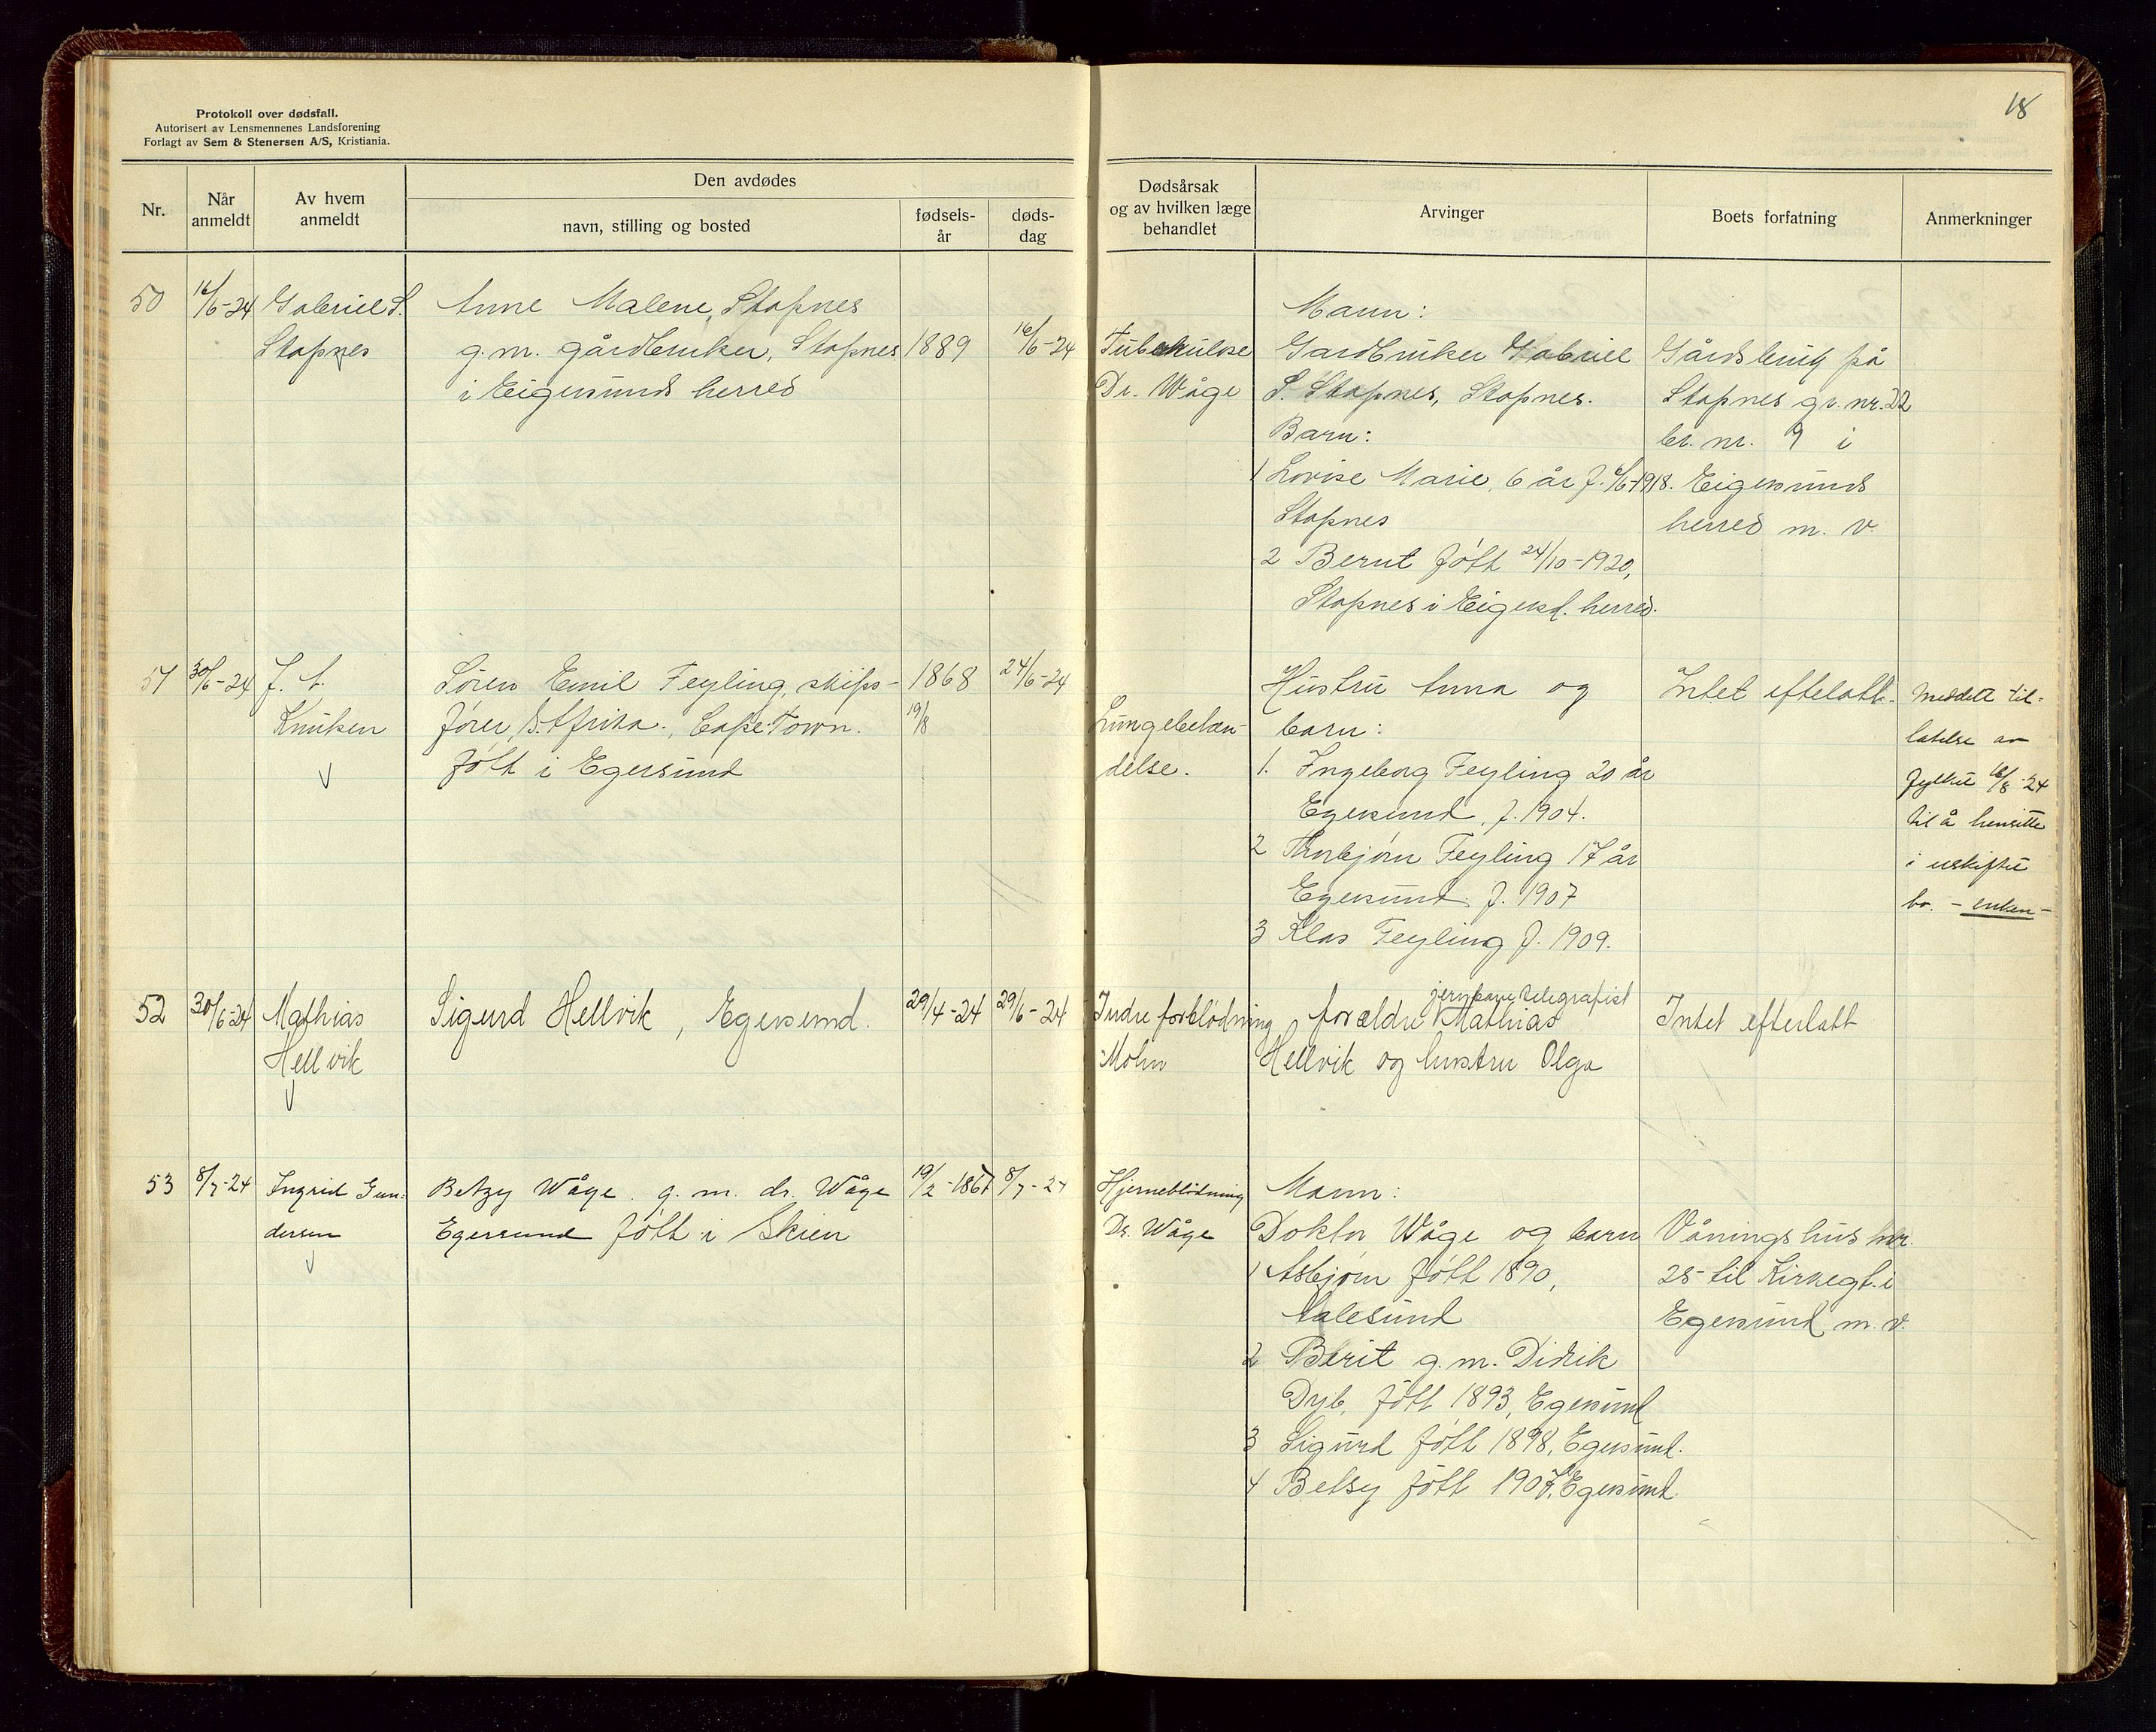 Protokoll over dødsfall.
Autorisert av Lensmennenes Landsforening
Forlagt av Sem & Stenersen A/S, Kristiania.
18
Nr.
Når anmeldt
Av hvem anmeldt
Den avdødes
navn, stilling og bosted
fødselsår
dødsdag
Dødsårsak og av hvilken læge behandlet
Arvinger
Boets forfatning
Anmerkninger
50
16/6-24
Gabriel S.
Stapnes
Anne Malene Stapnes
g.m. gårdbruker, Stapnes
i Eigersunds herred
1889
16/6-24
Tuberkulose
Dr. Wåge
Mann:
Gardbruker Gabriel
S. Stapnes, Stapnes.
Barn:
1 Lovise Marie, 6 år f. 6/6-1918.
Stapnes
2 Bernt født 24/10-1920,
Stapnes i Eigersd. herred.
Gårdsbruk på
Stapnes gr. nr. 22
br. nr. 9 i
Eigersunds
herred m. v.
51
30/6-24
J. A.
Knutsen
Sören Emil Feyling, skips-
fører, S. Afrika, Cape Town.
født i Egersund
1868
19/8
24/6-24
Lungebetæn-
delse.
Hustru Anna og
barn:
1. Ingeborg Feyling 20 år
Egersund, f. 1904.
2 Thorbjørn Feyling 17 år
Egersund. f. 1907
3 Klas Feyling f. 1909.
Intet efterlatt.
Meddelt til-
latelse av
fylket 16/8-24
til å hensitte
i uskiftet
bo. - enken -
52
30/6-24
Mathias
Hellvik
Sigurd Hellvik, Egersund.
29/4-24
29/6-24
Indre forblødning
Mohn
jernbanetelegrafist
forældre Mathias
Hellvik og hustru Olga
Intet efterlatt
53
8/7-24
Ingrid Gun-
dersen
Betzy Wåge. g. m. dr. Wåge
Egersund født i Skien
19/2-1867
8/7-24
Hjerneblödning
Dr. Wåge
Mann:
Doktor Wåge og barn
1 Asbjørn født 1890,
Aalesund
2 Berit g. m. Didrik
Dyb, født 1893, Egersund
3 Sigurd født 1898, Egersund.
4 Betsy født 1907, Egersund.
Våningshus hnr.
28 til Kirkegt. i
Egersund m. v.